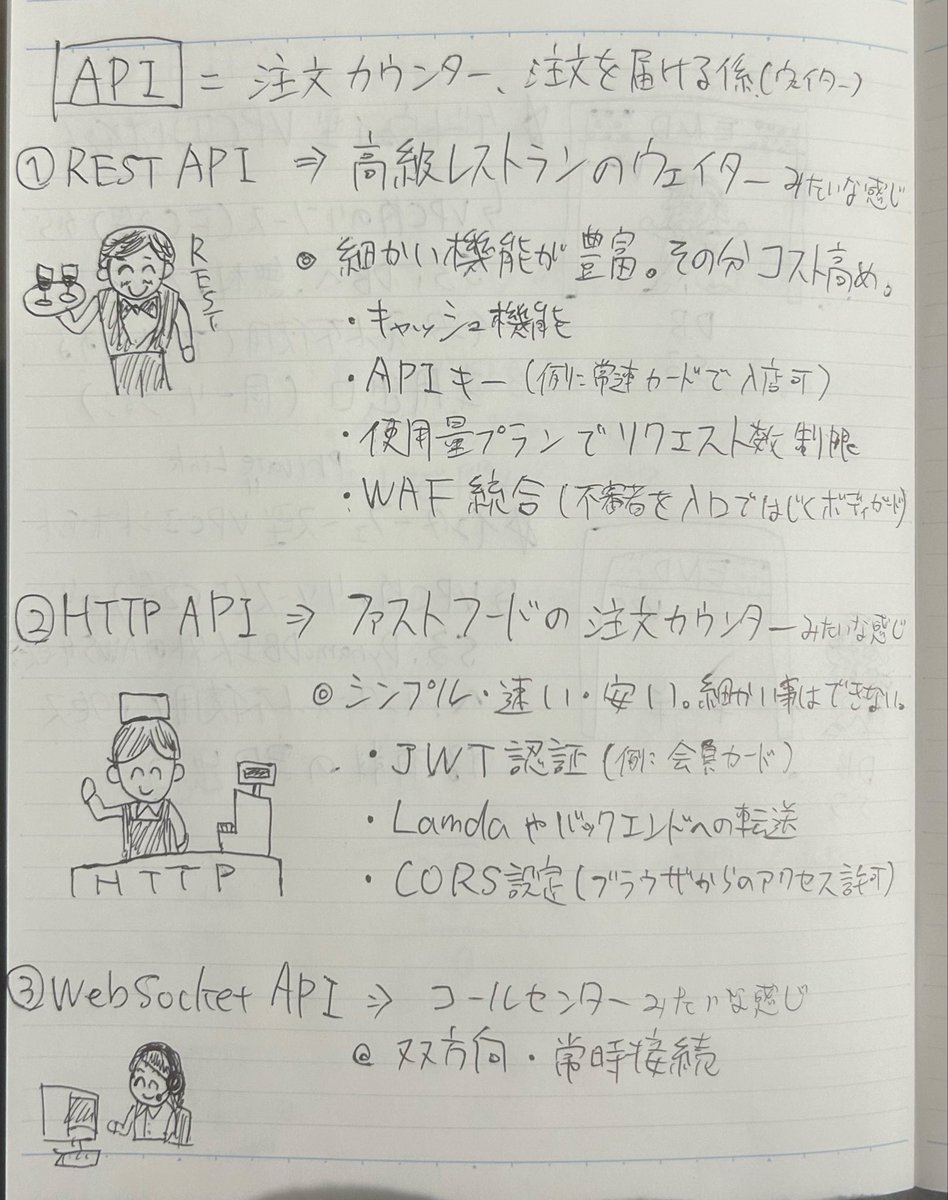 API = 注文カウンター、注文を届ける係(ウェイター)
①REST API ⇒ 高級レストランのウェイターみたいな感じ
REST
◎ 細かい機能が豊富。その分コスト高め。
・キャッシュ機能
・APIキー(例に常連カードで入店可)
・使用量プランでリクエスト数制限
・WAF統合(不審者を入口ではじくボディガード)
②HTTP API ⇒ ファストフードの注文カウンターみたいな感じ
◎シンプル・速い・安い。細かい事はできない。
・JWT認証(例に会員カード)
・Lamdaやバックエンドへの転送
HTTP
・CORS設定(ブラウザからのアクセス許可)
③WebSocket API ⇒ コールセンターみたいな感じ
◎ 双方向・常時接続